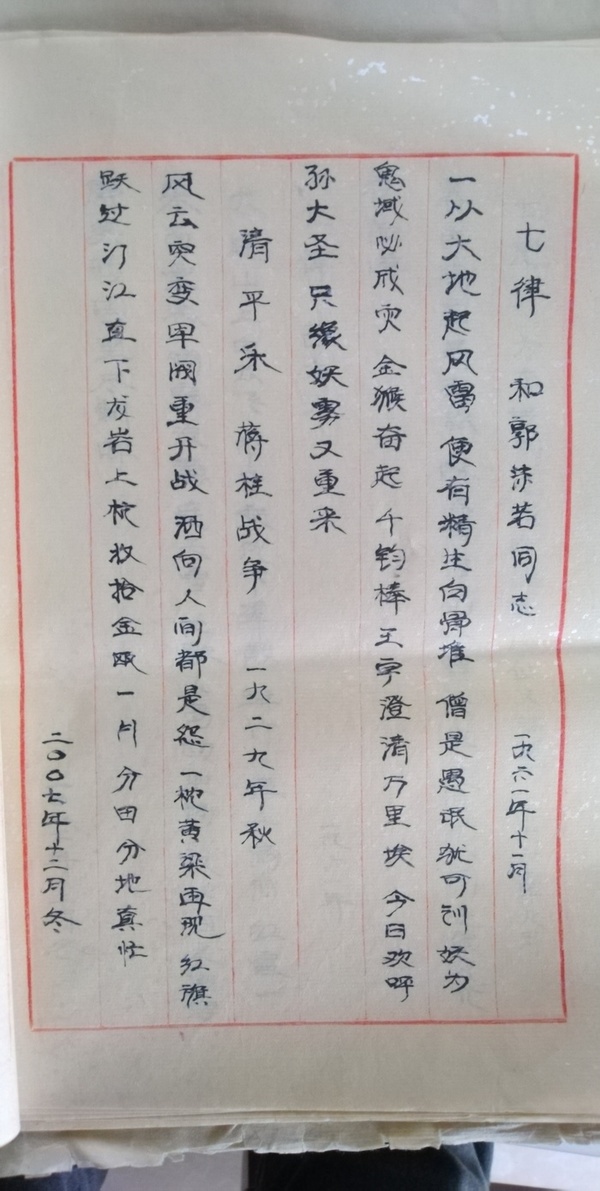 七律 和郭沫若同志 一九六一年十一月
一从大地起风雷 便有精生白骨堆 僧是愚氓犹可训 妖为
鬼域必成灾 金猴奋起千钧棒 玉宇澄清万里埃 今日欢呼
孙大圣 只缘妖雾又重来
清平乐 蒋桂战争 一九二九年秋
风云突变 军阀重开战 洒向人间都是怨 一枕黄粱再现 红旗
跃过汀江 直下龙岩上杭 收拾金瓯一片 分田分地真忙
二〇〇七年十二月冬